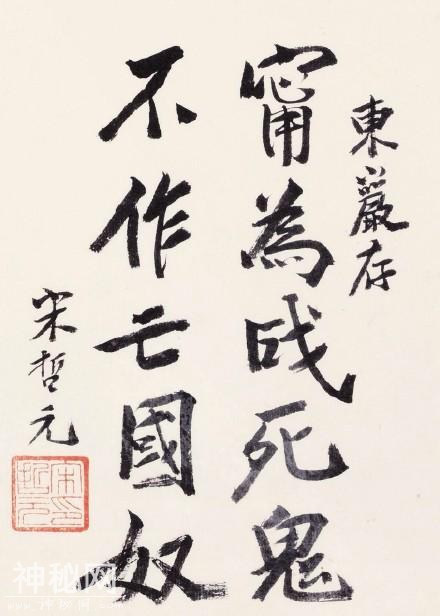 東巖存
甯為战死鬼
不作亡國奴
宋哲元
宋印
哲元
神秘网